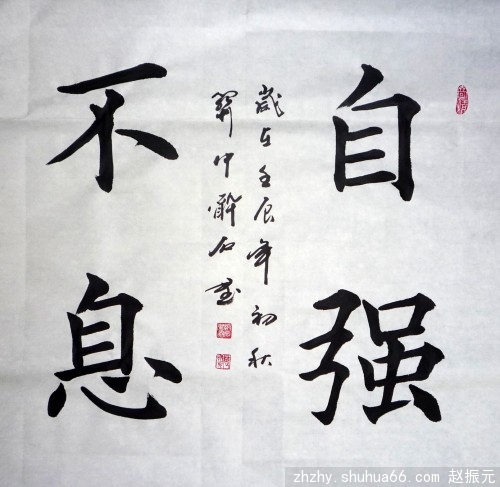 自强
不息
歲在壬辰年初秋
中醉石
zhzhy.shuhua66.com 赵振元